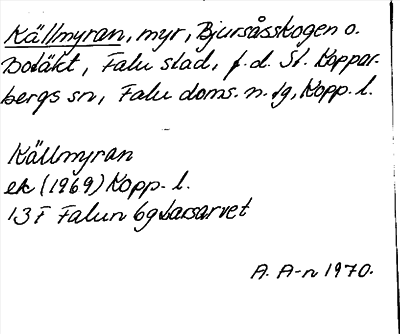 Källmyran, myr, Bjursåsskogen o.
Botäkt, Falu stad, f.d. St. Koppar-
bergs sn, Falu doms. n. tg, Kopp. l.
Källmyran
ek (1969) Kopp. l.
13 F Falun 6g Larsarvet
A. A-n 1970.